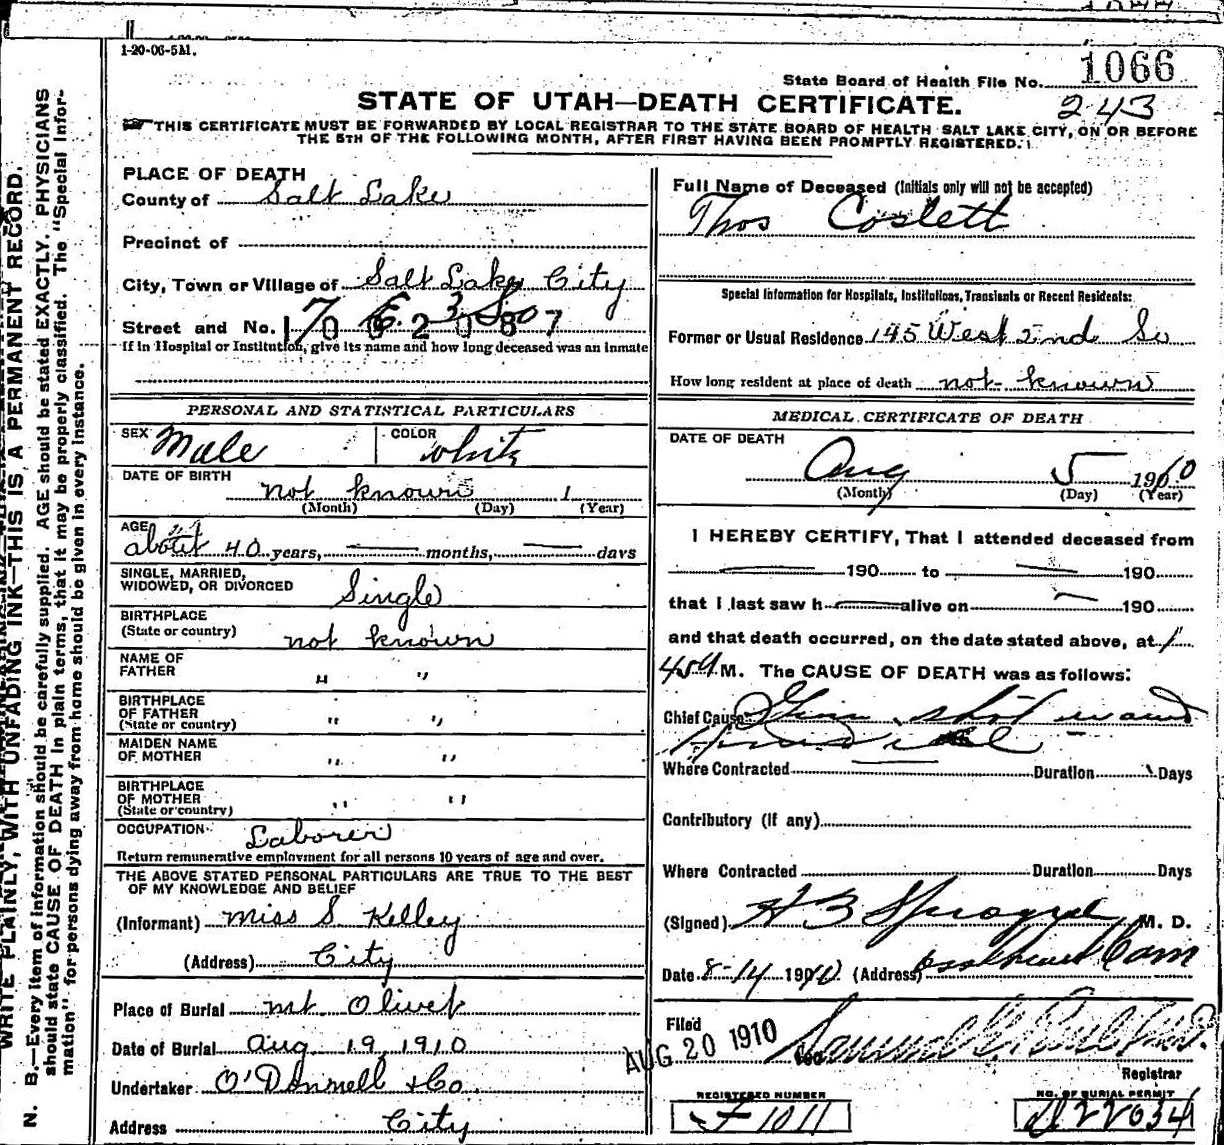 1-20-06-5M.
State Board of Health File No. 1066
STATE OF UTAH—DEATH CERTIFICATE.
243
THIS CERTIFICATE MUST BE FORWARDED BY LOCAL REGISTRAR TO THE STATE BOARD OF HEALTH SALT LAKE CITY, ON OR BEFORE
THE 5TH OF THE FOLLOWING MONTH, AFTER FIRST HAVING BEEN PROMPTLY REGISTERED.
WRITE PLAINLY, WITH UNFADING INK—THIS IS A PERMANENT RECORD.
N. B.—Every item of information should be carefully supplied. AGE should be stated EXACTLY. PHYSICIANS
should state CAUSE OF DEATH in plain terms, that it may be properly classified. The "Special Infor-
mation" for persons dying away from home should be given in every instance.
PLACE OF DEATH
County of Salt Lake
Precinct of
City, Town or Village of Salt Lake City
Street and No. 170 E. 3 So
If in Hospital or Institution, give its name and how long deceased was an inmate
PERSONAL AND STATISTICAL PARTICULARS
SEX Male COLOR White
DATE OF BIRTH not known 1
(Month) (Day) (Year)
AGE about 40 years, — months, — days
SINGLE, MARRIED,
WIDOWED, OR DIVORCED Single
BIRTHPLACE
(State or country) not known
NAME OF
FATHER " "
BIRTHPLACE
OF FATHER
(State or country) " "
MAIDEN NAME
OF MOTHER " "
BIRTHPLACE
OF MOTHER
(State or country) " "
OCCUPATION Laborer
Return remunerative employment for all persons 10 years of age and over.
THE ABOVE STATED PERSONAL PARTICULARS ARE TRUE TO THE BEST
OF MY KNOWLEDGE AND BELIEF
(Informant) Miss S. Kelley
(Address) City
Place of Burial Mt Olivet
Date of Burial Aug. 19, 1910
Undertaker O'Donnell & Co.
Address City
Full Name of Deceased (Initials only will not be accepted)
Thos Coslett
Special Information for Hospitals, Institutions, Transients or Recent Residents:
Former or Usual Residence 145 West 2nd So
How long resident at place of death not known
MEDICAL CERTIFICATE OF DEATH
DATE OF DEATH
Aug 5 1910
(Month) (Day) (Year)
I HEREBY CERTIFY, That I attended deceased from
— 190 to — 190
that I last saw h — alive on — 190
and that death occurred, on the date stated above, at 1
45 M. The CAUSE OF DEATH was as follows:
Chief Cause Gun shot wound
Homicidal
Where Contracted — Duration Days
Contributory (if any)
Where Contracted Duration Days
(Signed) H B Sprague M. D.
Date 8-14 1910 (Address)
Filed
AUG 20 1910
Registrar
REGISTERED NUMBER
F 1011
NO. OF BURIAL PERMIT
D22034